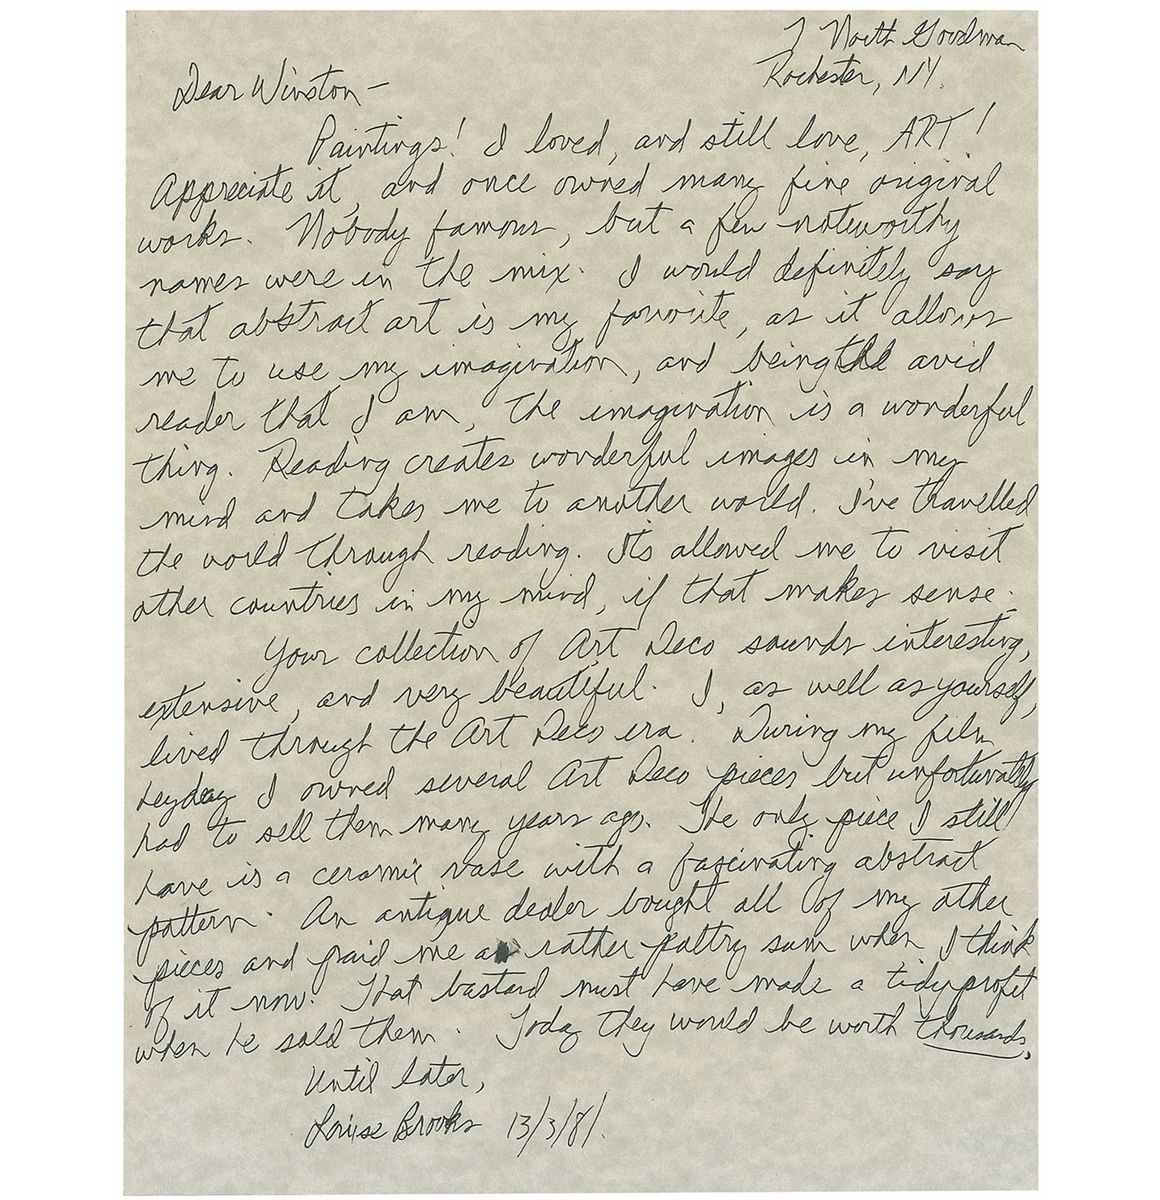 7 North Goodman
Rochester, NY.
Dear Winston –
Paintings! I loved, and still love, ART!
Appreciate it, and once owned many fine original
works. Nobody famous, but a few noteworthy
names were in the mix. I would definitely say
that abstract art is my favorite, as it allows
me to use my imagination, and being the avid
reader that I am, the imagination is a wonderful
thing. Reading creates wonderful images in my
mind and takes me to another world. I've travelled
the world through reading. Its allowed me to visit
other countries in my mind, if that makes sense.
Your collection of Art Deco sounds interesting,
extensive, and very beautiful. I, as well as yourself,
lived through the Art Deco era. During my film
heyday I owned several Art Deco pieces but unfortunately
had to sell them many years ago. The only piece I still
have is a ceramic vase with a fascinating abstract
pattern. An antique dealer bought all of my other
pieces and paid me a rather paltry sum when I think
of it now. That bastard must have made a tidy profit
when he sold them. Today they would be worth thousands.
Until later,
Louise Brooks 13/3/81.